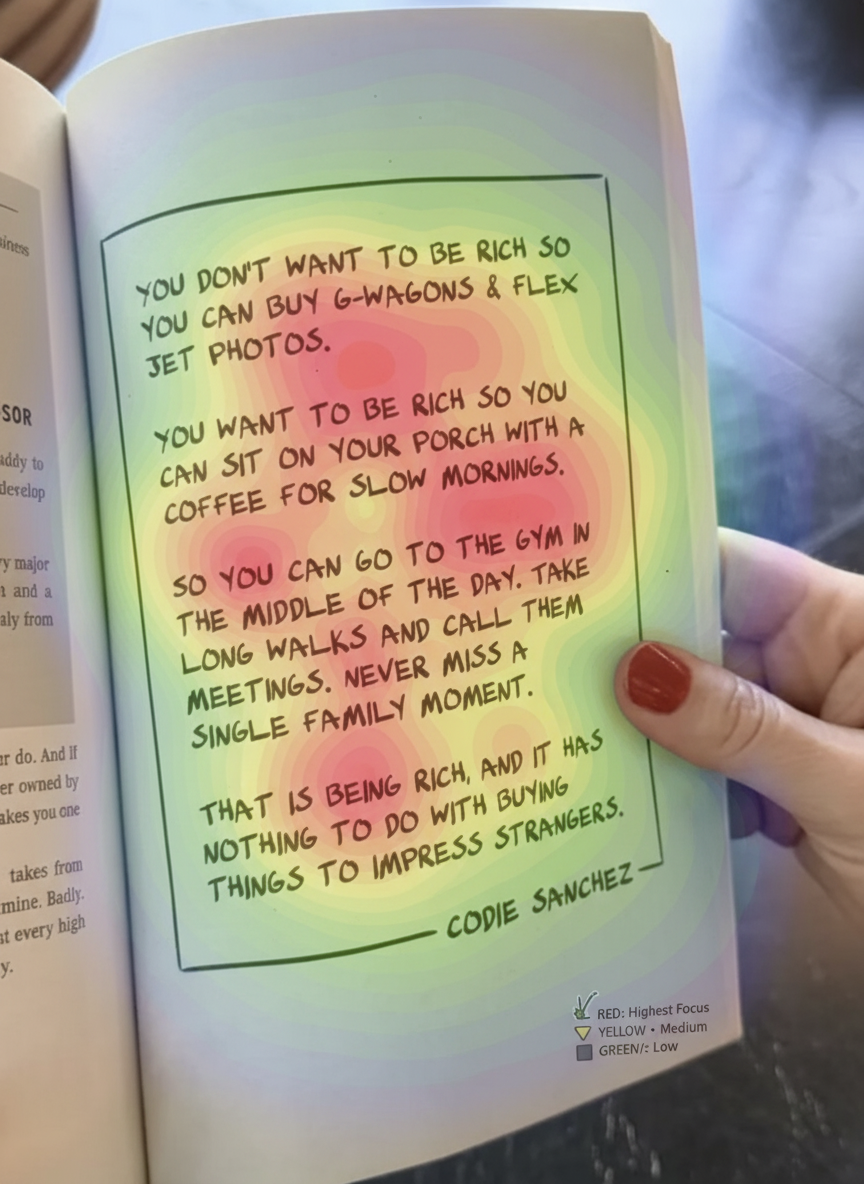 iness
SOR
addy to
develop
y major
and a
aly from
ur do. And if
er owned by
akes you one
takes from
mine. Badly.
st every high
y.
YOU DON'T WANT TO BE RICH SO
YOU CAN BUY G-WAGONS & FLEX
JET PHOTOS.
YOU WANT TO BE RICH SO YOU
CAN SIT ON YOUR PORCH WITH A
COFFEE FOR SLOW MORNINGS.
SO YOU CAN GO TO THE GYM IN
THE MIDDLE OF THE DAY. TAKE
LONG WALKS AND CALL THEM
MEETINGS. NEVER MISS A
SINGLE FAMILY MOMENT.
THAT IS BEING RICH, AND IT HAS
NOTHING TO DO WITH BUYING
THINGS TO IMPRESS STRANGERS.
CODIE SANCHEZ
RED: Highest Focus
YELLOW • Medium
GREEN/: Low